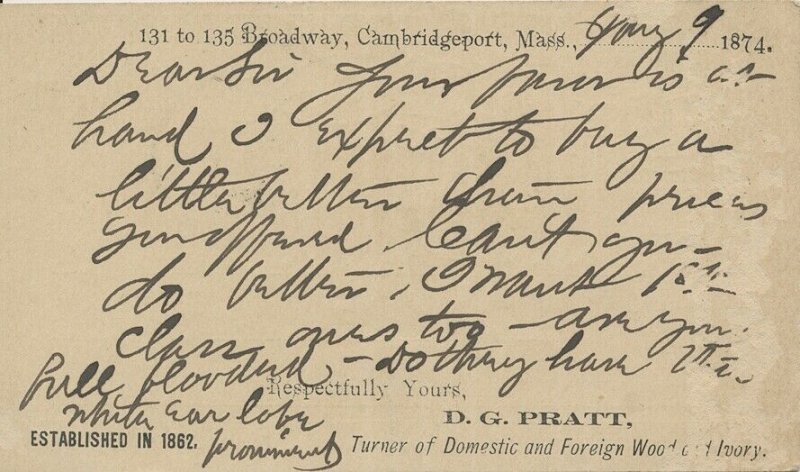 131 to 135 Broadway, Cambridgeport, Mass., 9 1874.
Dear Sir Your favor is at
hand I expect to buy a
little better than prices
you offered. Can't you
do better, I want 1st
class ones too - are you
full blooded - Do they have the
Respectfully Yours,
white ear lobe
D. G. PRATT,
ESTABLISHED IN 1862. prominent Turner of Domestic and Foreign Wood and Ivory.